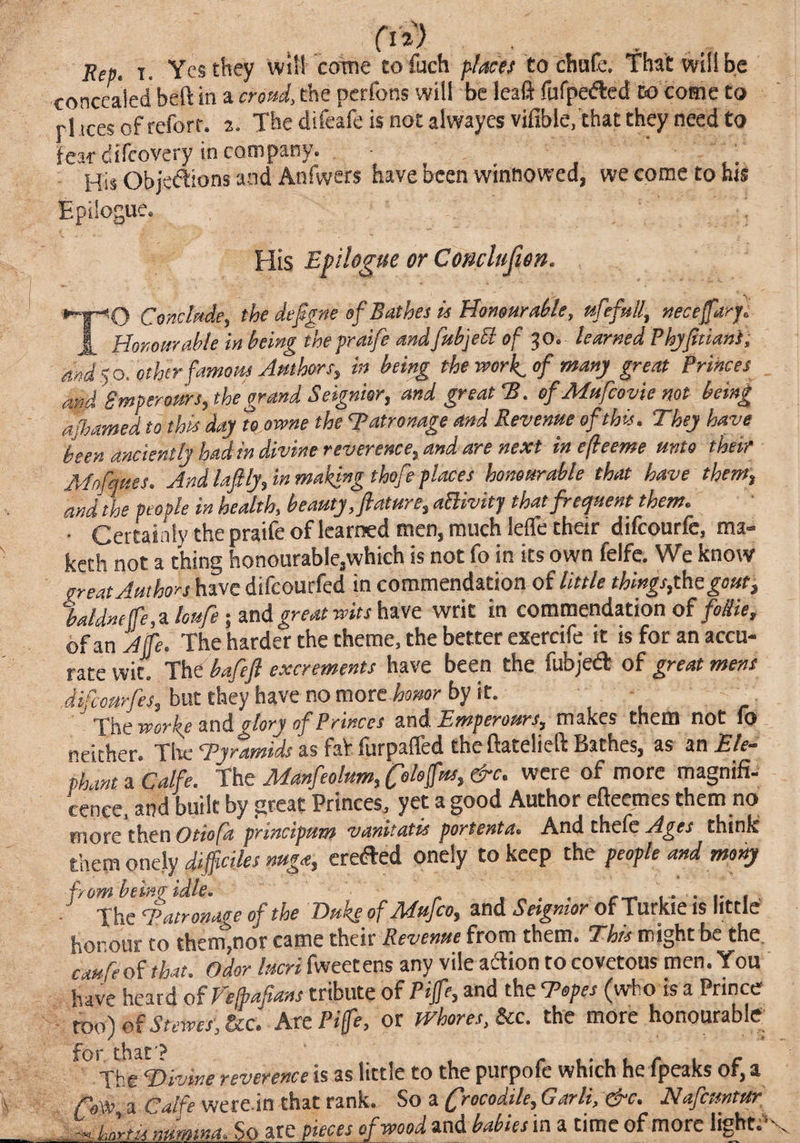 (12)
Rep. 1. Yes they will come to such places to chuse. That will be
concealed best in a croud, the persons will be least suspected to come to
plices of resort. 2. The disease is not alwayes visible, that they need to
fear discovery in company.
His Objections and Answers have been winnowed, we come to his
Epilogue.
His Epilogue or Conclusion.
TO Conclude, the designe of Bathes is Honourable, usefull, necessary.
Honourable in being the praise and subject of 30. learned Physitians,
and 50. other famous Authors, in being the work of many great Princes
and Emperours, the grand Seignior, and great B. of Muscovie not being
ashamed to this day to owne the Patronage and Revenue of this. They have
been anciently had in divine reverence, and are next in esteeme unto their
Mosques. And lastly, in making those places honourable that have them,
and the people in health, beauty, stature, activity that frequent them.
Certainly the praise of learned men, much lesse their discourse, ma-
keth not a thing honourable, which is not so in its own selfe. We know
great Authors have discoursed in commendation of little things, the gout,
baldnesse, a louse; and great wits have writ in commendation of follie,
of an Asse. The harder the theme, the better exercise it is for an accu-
rate wit. The basest excrements have been the subject of great mens
discourses, but they have no more honor by it.
The worke and glory of Princes and Emperours, makes them not so
neither. The Pyramids as far surpassed the stateliest Bathes, as an Ele-
phant a Calfe. The Mauseolum, Colossus, &c. were of more magnifi-
cence, and built by great Princes, yet a good Author esteemes them no
more then Otiosa principum vanitatis portenta. And these Ages think
them onely difficiles nugæ, erected onely to keep the people and mony
from being idle.
The Patronage of the Duke of Musco, and Seignior of Turkie is little
honour to them, nor came their Revenue from them. This might be the
cause of that. Odor lucri sweetens any vile action to covetous men. You
have heard of Vespasians tribute of Pisse, and the Popes (who is a Prince
too) of Stewes, &c. Are Pisse, or Whores, &c. the more honourable
for that?
The Divine reverence is as little to the purpose which he speaks of, a
Cow, a Calfe were in that rank. So a Crocodile, Garli, &c. Nascuntur
hortis numina. So are pieces of wood and babies in a time of more light.